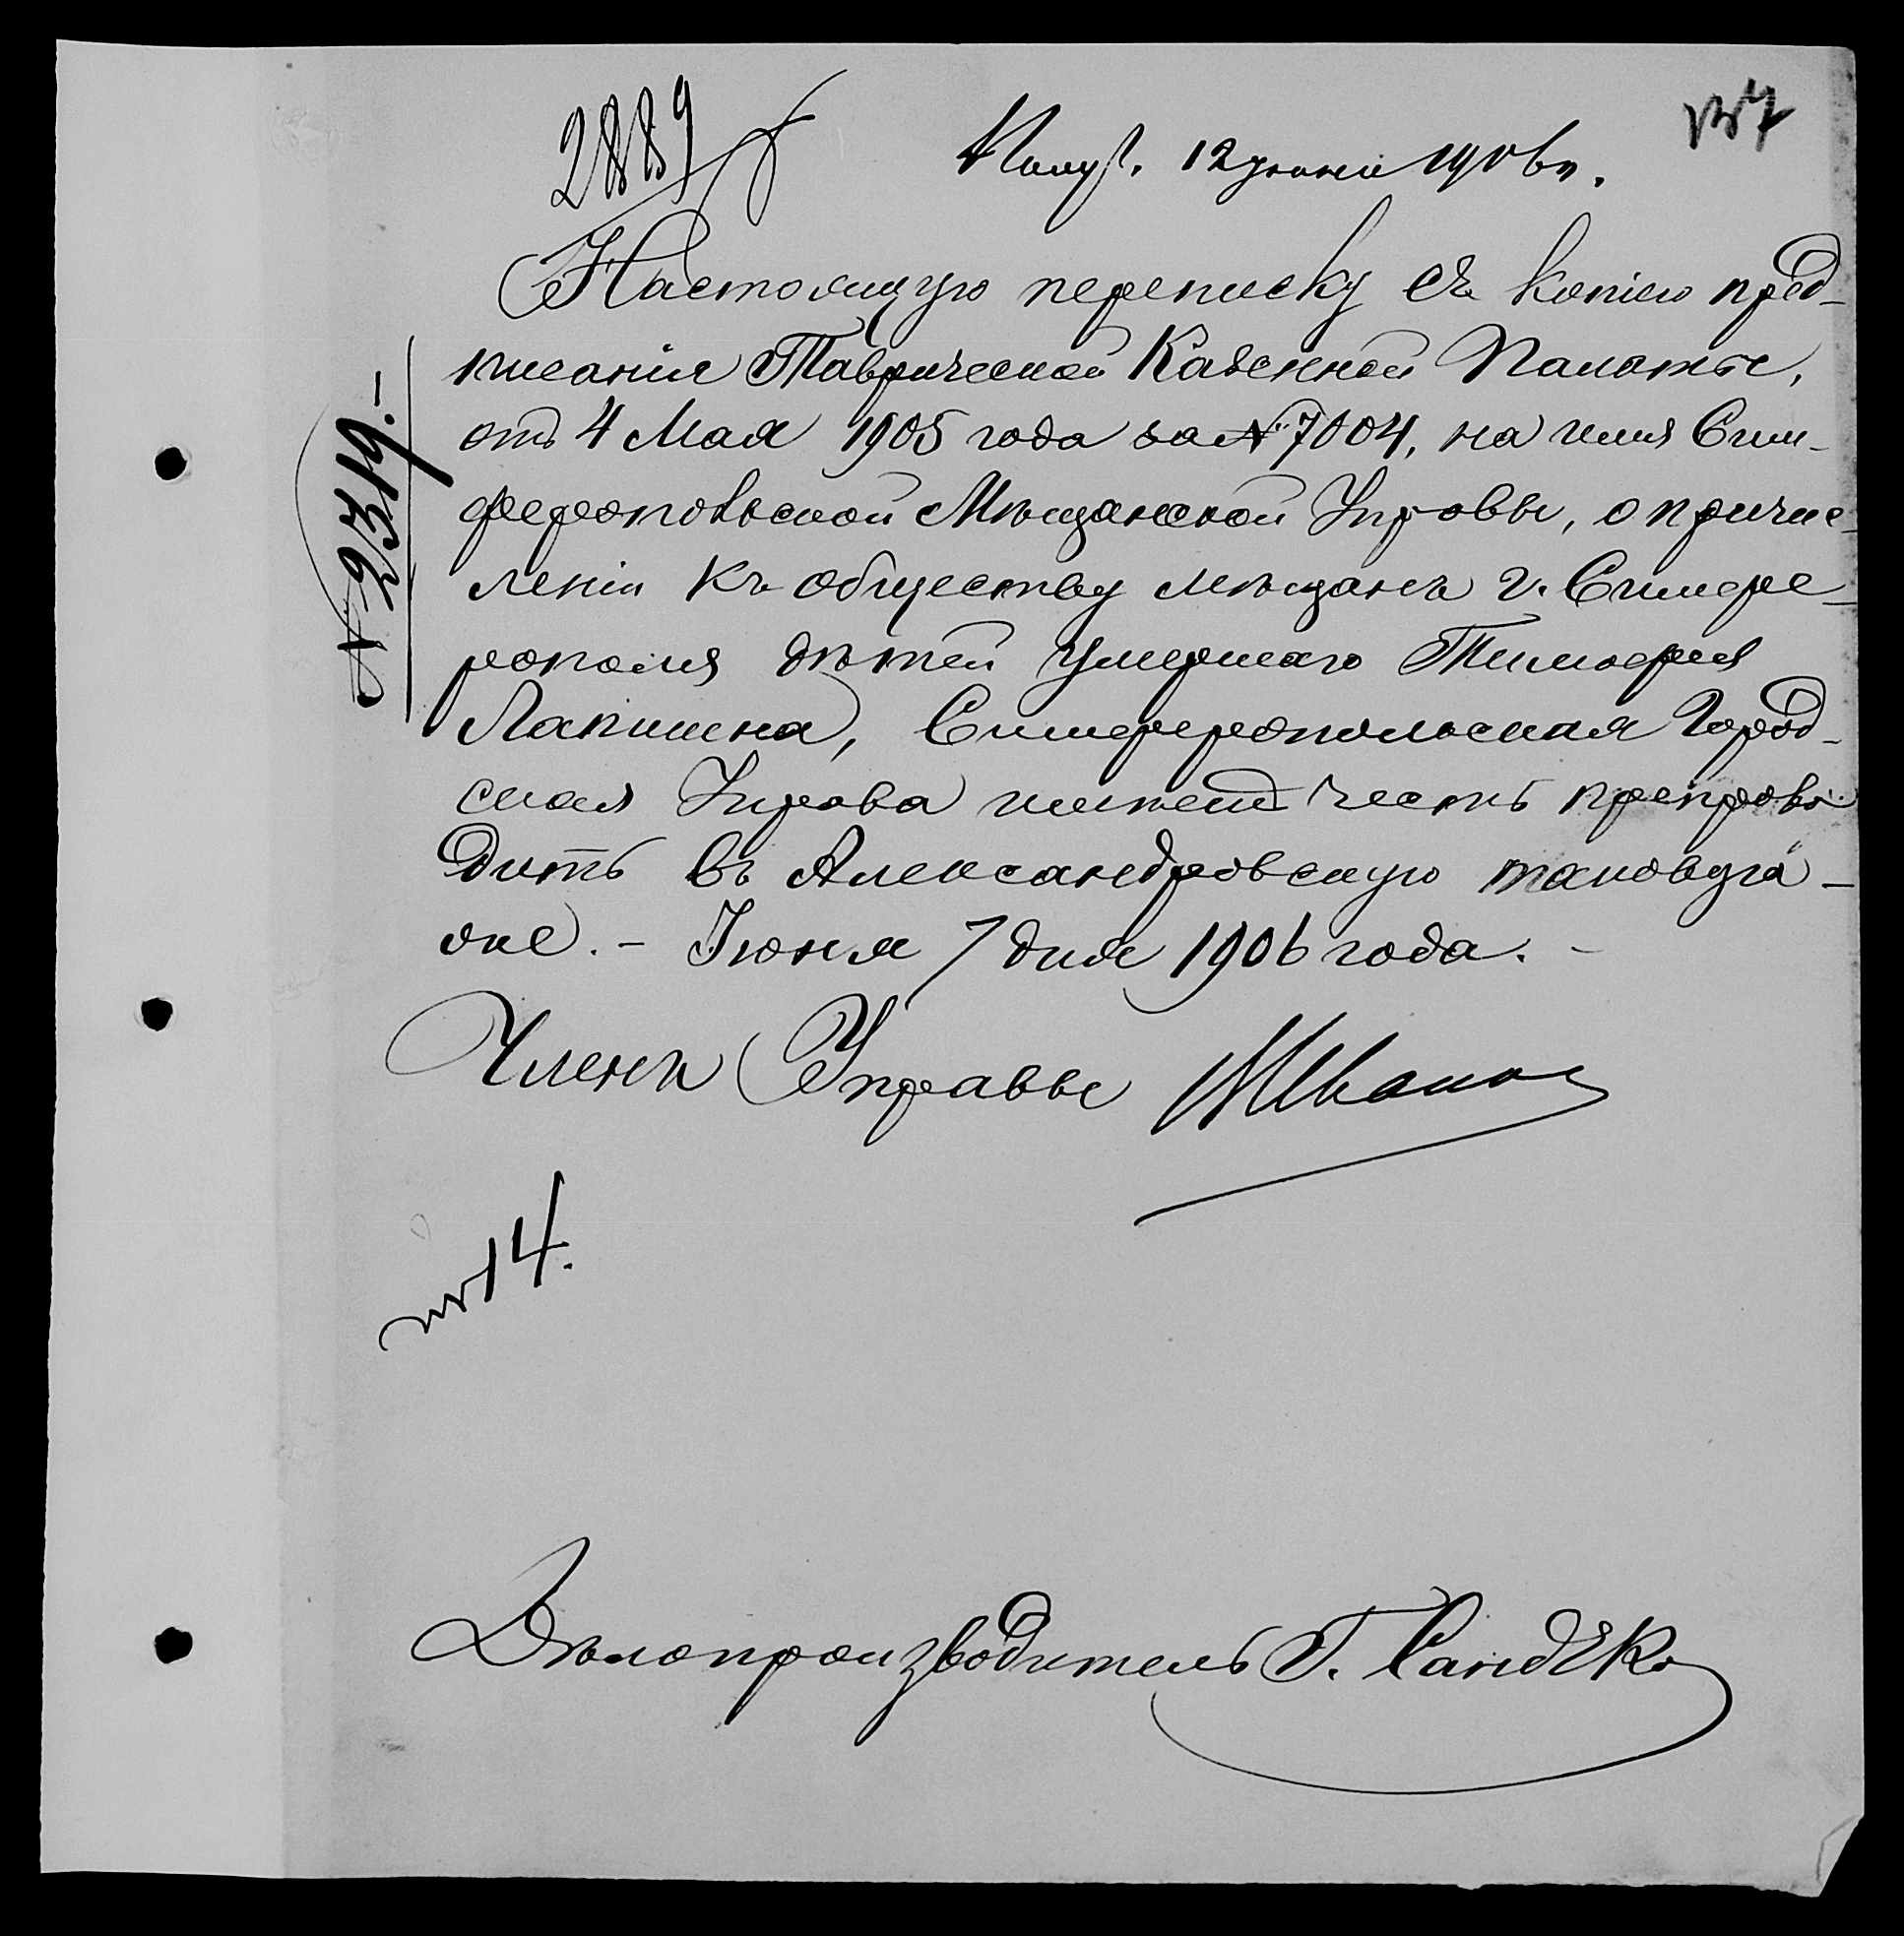 2889
137
Получ. 12 іюня 1906 г.
Настоящую переписку съ копіею пред-
писанія Таврической Казенной Палаты,
отъ 4 Мая 1905 года за № 7004, на имя Сим-
феропольской Мѣщанской Управы, о причис-
леніи къ обществу мѣщанъ г. Симфе-
рополя дѣтей умершаго Тимофея
Лапшина, Симферопольская Город-
ская Управа имѣетъ честь препрово-
дить въ Александровскую таковую
же. - Іюня 7 дня 1906 года. -
№ 2319.-
Членъ Управы МИванов
14.
Дѣлопроизводитель Г. Сандеко